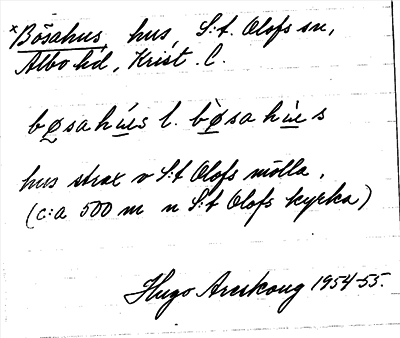 *Bösahus, hus, S:t. Olofs sn,
Albo hd, Krist. l.
bø̱sahú̱s l. bø̱̀sahù̱s
hus strax v S:t Olofs mölla.
(c:a 500 m n S:t Olofs kyrka)
Hugo Areskoug 1954-55.